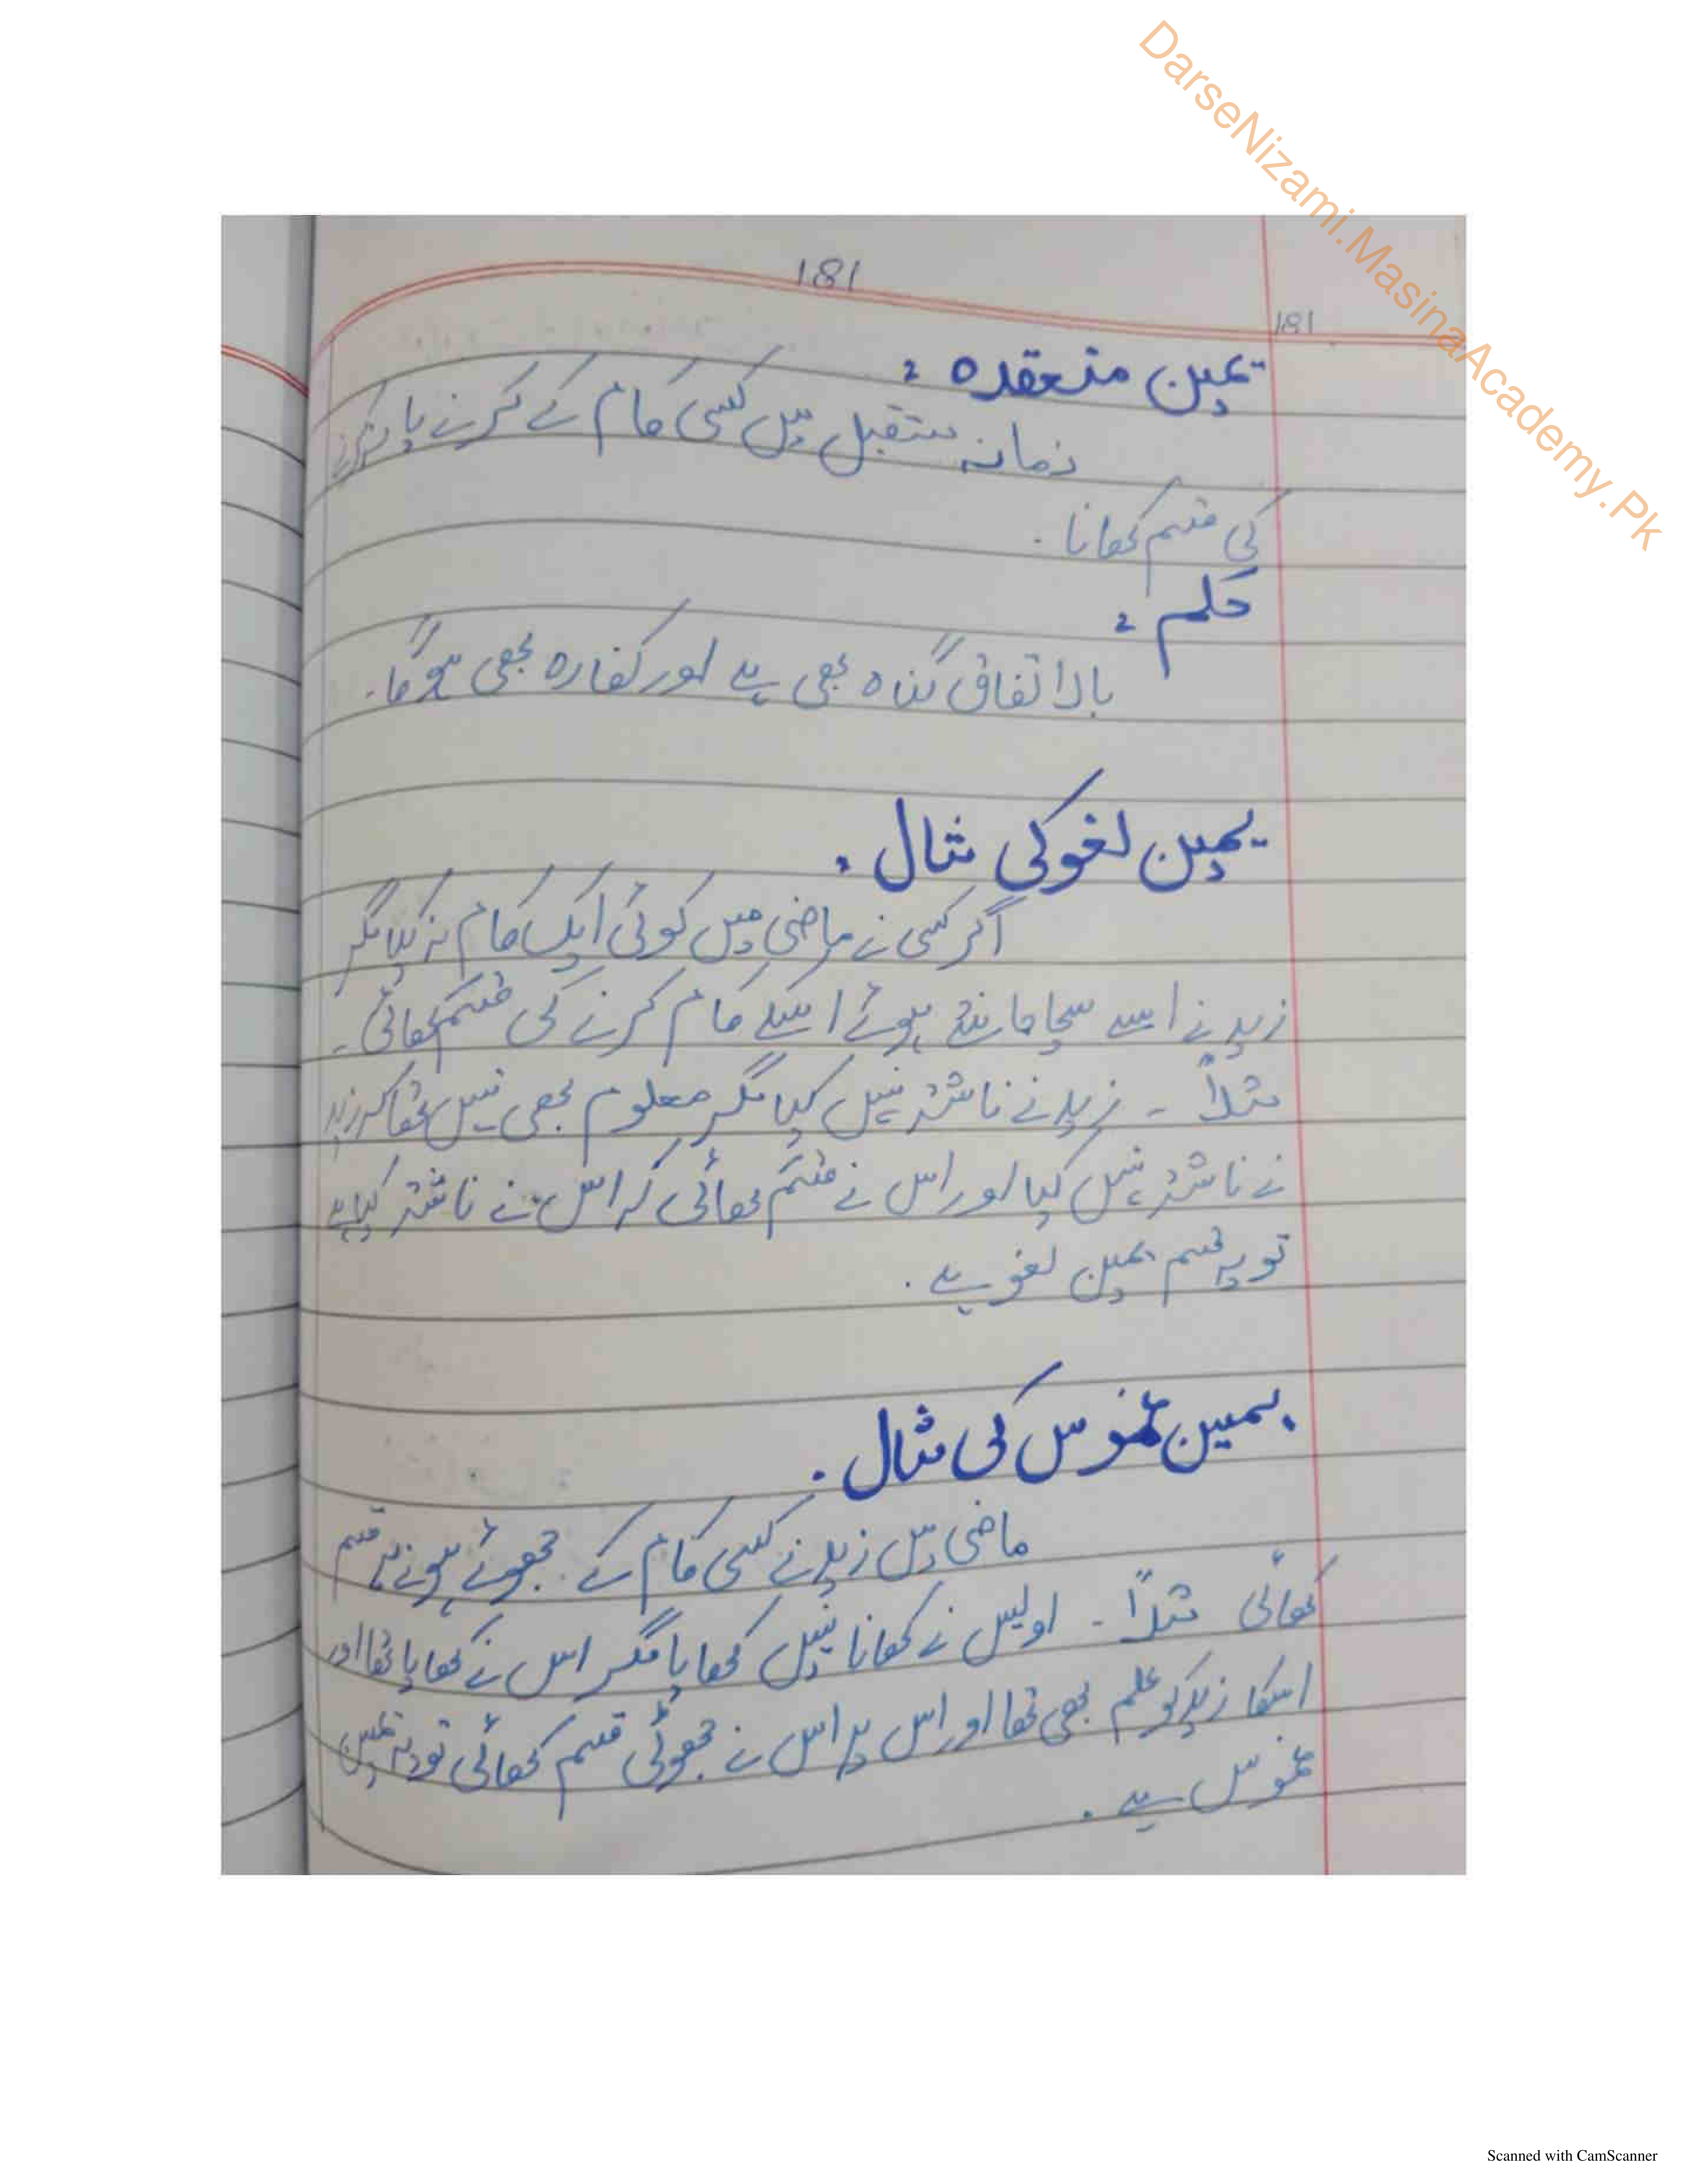 DarseNizami.MasinaAcademy.Pk
181
181
یمین منعقدہ :
زمانہ مستقبل میں کسی کام کے کرنے یا نہ کرنے
کی قسم کھانا .
حکم :
بالاتفاق گناہ بھی ہے اور کفارہ بھی ہوگا .
یمین لغو کی مثال :
اگر کسی نے ماضی میں کوئی ایک کام نہ کیا مگر
زید نے اسے سچا جانتے ہوئے اسکے کام کرنے کی قسم کھائی ۔
مثلاً ۔ زید نے ناشتہ نہیں کیا مگر معلوم بھی نہیں تھا کہ زید
نے ناشتہ نہیں کیا اور اس نے قسم کھائی کہ اس نے ناشتہ کیا ہے
تو یہ قسم یمین لغو ہے .
یمین غموس کی مثال .
ماضی میں زید نے کسی کام کے جھوٹے ہونے پر قسم
کھائی مثلاً ۔ اویس نے کھانا نہیں کھایا مگر اس نے کھایا تھا اور
اسکا زید کو علم بھی تھا اور اس پر اس نے جھوٹی قسم کھائی تو یہ یمین
غموس ہے .
Scanned with CamScanner